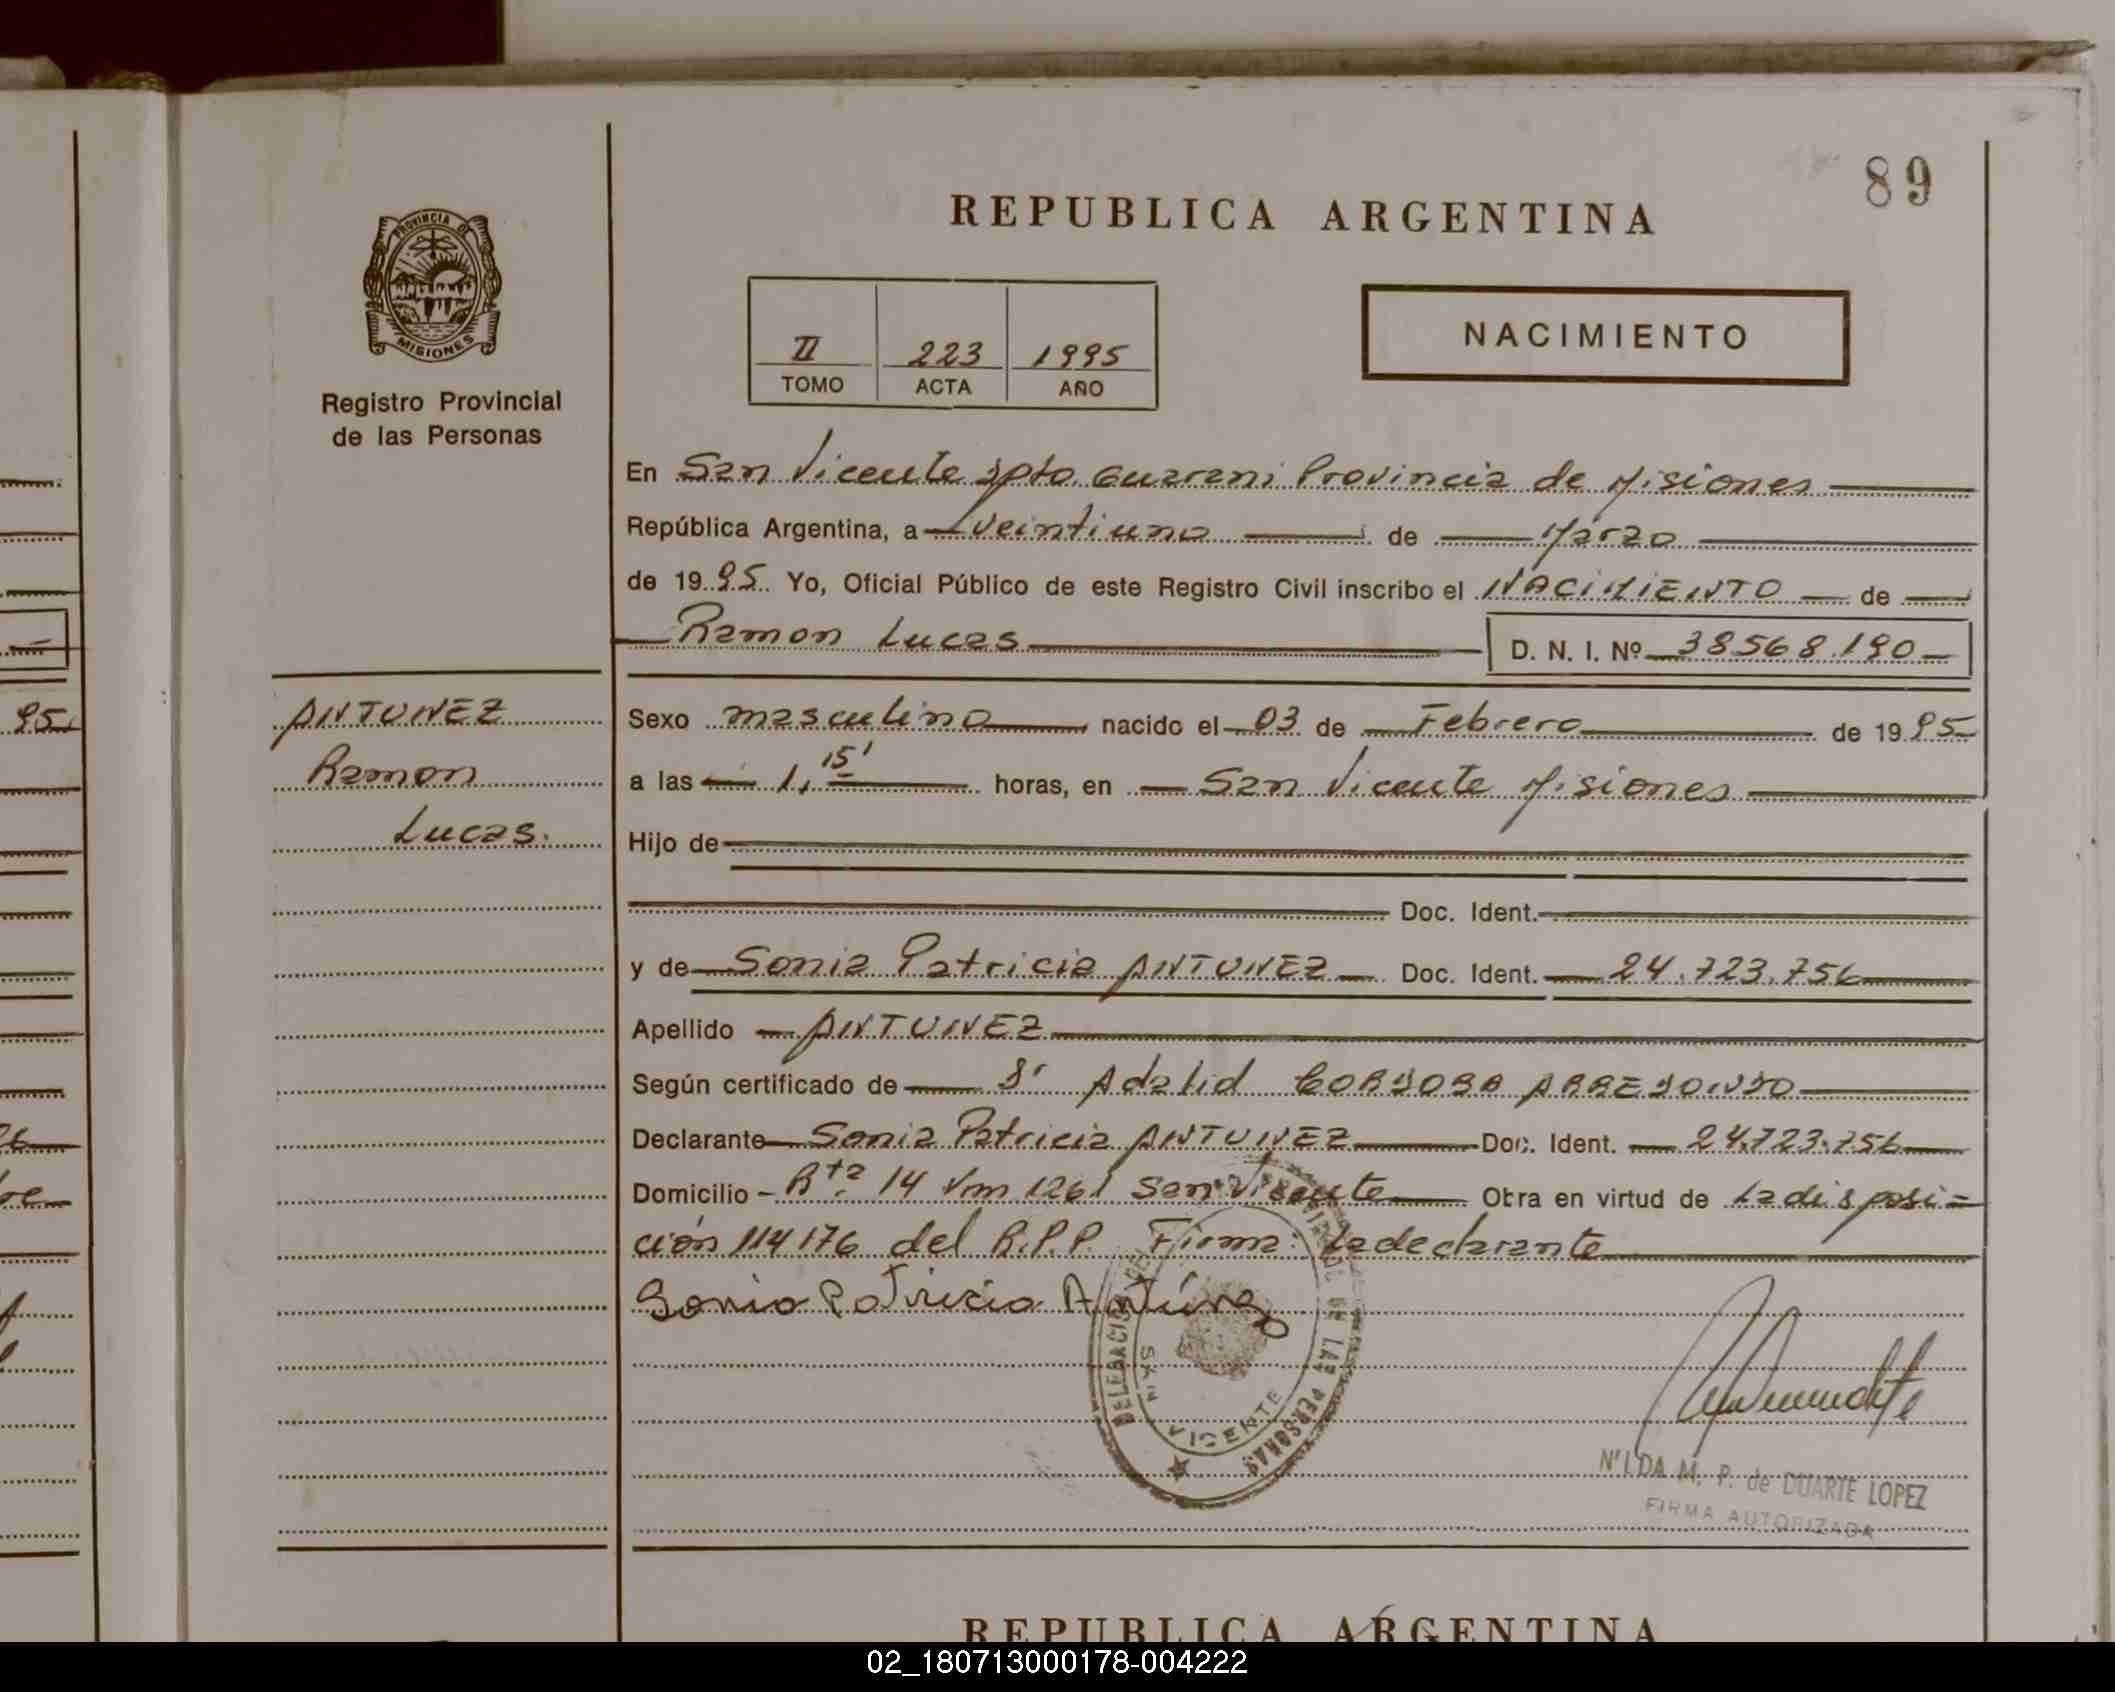 89
REPUBLICA ARGENTINA
PROVINCIA DE
MISIONES
Registro Provincial
de las Personas
II 223 1995
TOMO ACTA AÑO
NACIMIENTO
En San Vicente Dpto. Guarani Provincia de Misiones
República Argentina, a veintiuno de Marzo
de 1995. Yo, Oficial Público de este Registro Civil inscribo el NACIMIENTO de
Ramon Lucas D. N. I. Nº 38568.190
ANTUNEZ
Ramon
Lucas.
Sexo masculino nacido el 03 de Febrero de 1995
a las 1,15' horas, en San Vicente Misiones
Hijo de
Doc. Ident.
y de Sonia Patricia ANTUNEZ Doc. Ident. 24.723.756
Apellido ANTUNEZ
Según certificado de Dr Adalid CORDOBA ARREDONDO
Declarante Sonia Patricia ANTUNEZ Doc. Ident. 24.723.756
Domicilio Rta. 14 km 1261 San Vicente Obra en virtud de La disposi-
ción 114176 del R.P.P. Firma: La declarante
Sonia Patricia Antúnez
DE LAS PERSONAS
SAN VICENTE
NILDA M. P. de DUARTE LOPEZ
FIRMA AUTORIZADA
95
REPUBLICA ARGENTINA
02_180713000178-004222